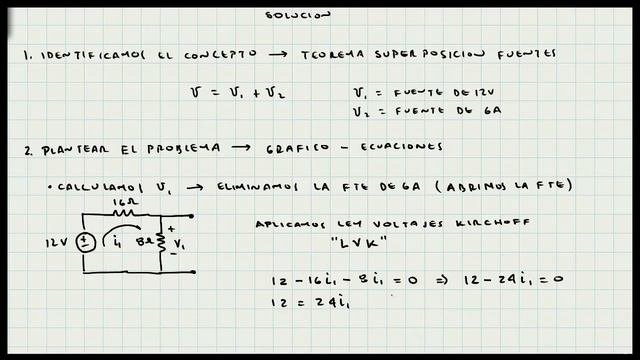 SOLUCION
1. IDENTIFICAMOS EL CONCEPTO → TEOREMA SUPERPOSICION FUENTES
V = V₁ + V₂
V₁ = FUENTE DE 12V
V₂ = FUENTE DE 6A
2. PLANTEAR EL PROBLEMA → GRAFICO - ECUACIONES
• CALCULAMOS V₁ → ELIMINAMOS LA FTE DE 6A (ABRIMOS LA FTE)
16Ω
12V + - i₁ 8Ω + V₁ -
APLICAMOS LEY VOLTAJES KIRCHOFF
"LVK"
12 - 16i₁ - 8i₁ = 0 ⇒ 12 - 24i₁ = 0
12 = 24i₁